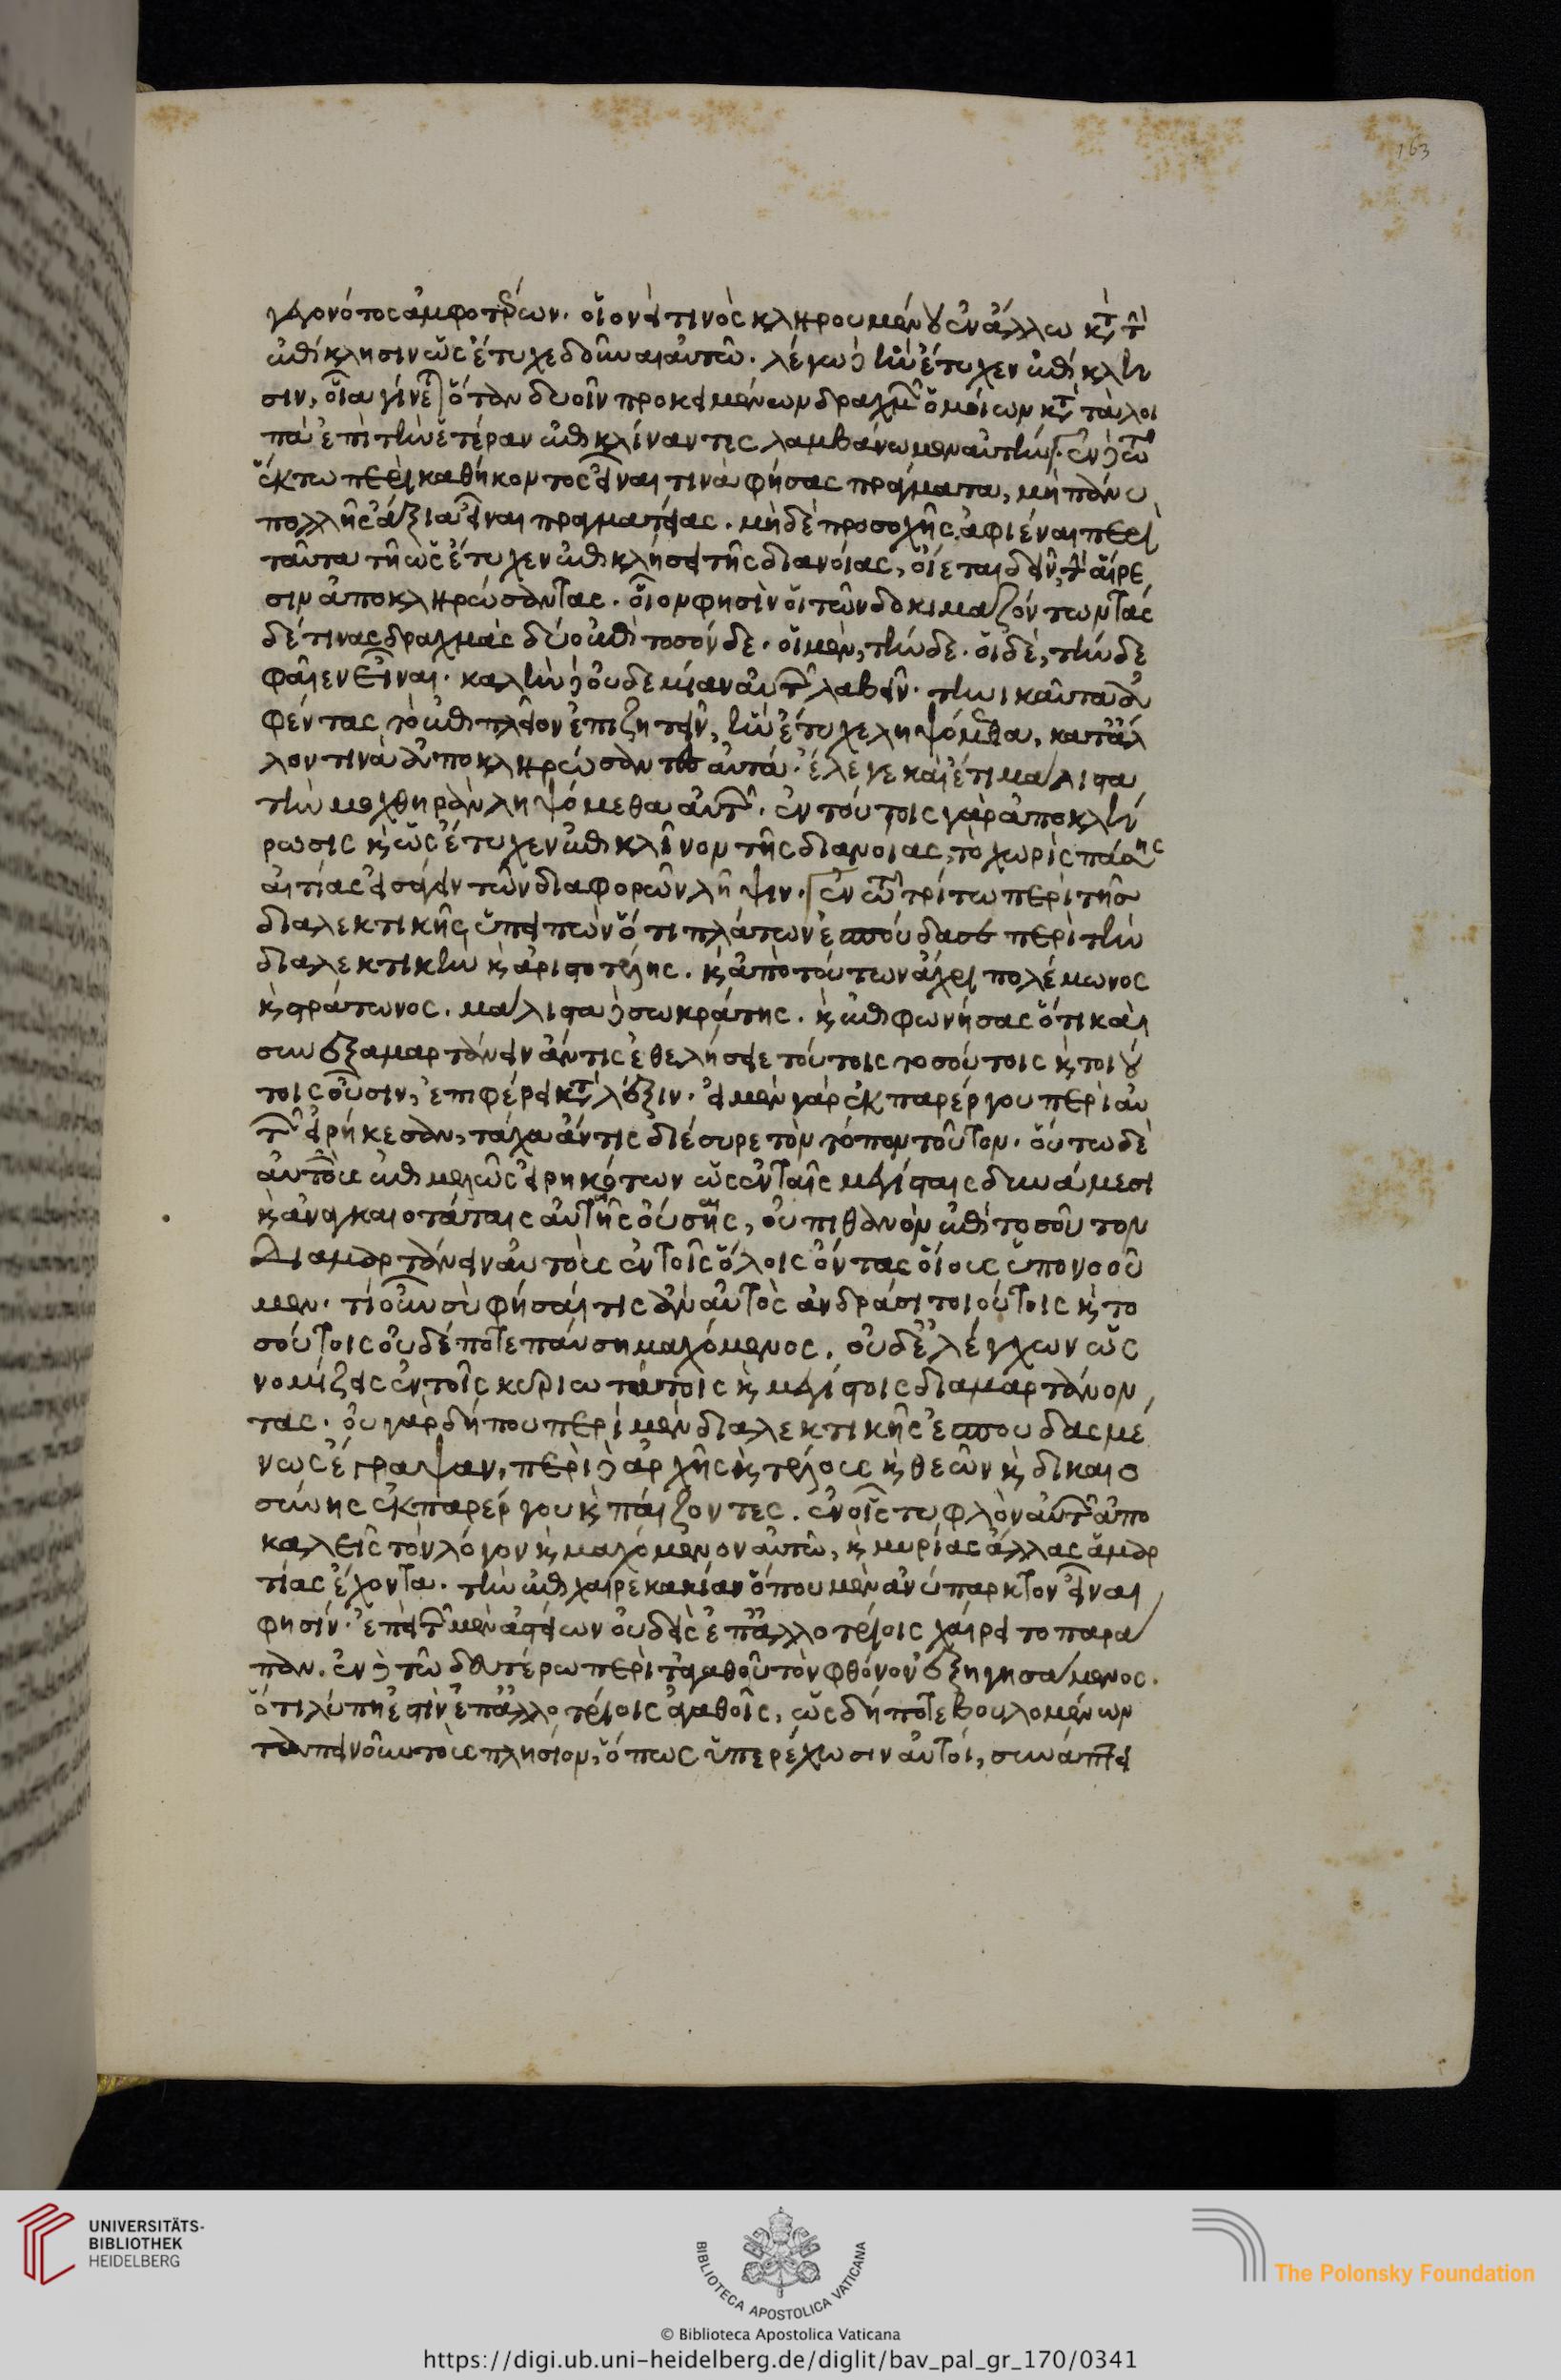 γεγονότος ἀμφοτέρων. οἷον εἴ τινὸς κληρουμένου ἐν ἄλλω κατὰ τὴν
ἐπίκλησιν ὡς ἔτυχε δοῦναι αὐτῶ. λέγω δὲ ἣν ἔτυχεν ἐπίκλη
σιν, οἷα γίνεται ὅταν δυοῖν προκειμένων δραχμῶν ὁμοίων κατὰ τὰ λοι
πὰ ἐπὶ τὴν ἑτέραν ἐπικλίναντες λαμβάνωμεν αὐτήν. ἐν δὲ τῶ
ἕκτω περὶ καθήκοντος εἶναι τινὰ φήσας πράγματα, μὴ πάνυ
πολλῆς ἄξια εἶναι πραγματείας. μηδὲ προσοχῆς ἀφιέναι περὶ
ταῦτα τῆ ὡς ἔτυχεν ἐπικλήσει τῆς διανοίας, οἴεται δεῖν, τὴν αἵρε
σιν ἀποκληρώσαντας. οἷον φησὶν οἱ τῶν δοκιμαζόντων τάς
δέ τινας δραχμὰς δύο ἐπὶ τοσόνδε. οἱ μὲν, τήνδε. οἱ δὲ, τήνδε
φαῖεν εἶναι. καλὴν δὲ οὐδεμίαν αὐτῶν λαβεῖν. τηνικαῦτα ἀ
φέντας τὸ ἐπιπλεῖον ἐπιζητεῖν, ἣν ἔτυχε ληψόμεθα, κατ' ἄλ
λον τινὰ ἀποκληρώσαντες αὐτά. ἔλεγε καὶ ἔτι μάλιστα
τὴν μοχθηρὰν ληψόμεθα αὐτῶν. ἐν τούτοις γὰρ ἀποκλή
ρωσις καὶ ὡς ἔτυχεν ἐπικλῖνον τῆς διανοίας, τὸ χωρὶς πάσης
αἰτίας εἰσάγειν τῶν διαφορῶν λῆψιν. ἐν τῶ τρίτω περὶ τῆς
διαλεκτικῆς ὑπειπὼν ὅτι πλάτων ἐσπούδασε περὶ τὴν
διαλεκτικὴν καὶ ἀριστοτέλης. καὶ ἀπὸ τούτων ἄχρι πολέμωνος
καὶ στράτωνος. μάλιστα δὲ σωκράτης. καὶ ἐπιφωνήσας ὅτι καὶ
συνεξαμαρτάνειν ἄν τις ἐθελήσειε τούτοις τοσούτοις καὶ τοιού
τοις οὖσιν, ἐπιφέρει κατὰ λέξιν. εἰ μὲν γὰρ ἐκ παρέργου περὶ αὐ
τῶν εἰρήκεσαν, τάχα ἄν τις διέσυρε τὸν τόπον τοῦτον. οὕτω δὲ
αὐτῶν ἐπιμελῶς εἰρηκότων ὡς ἐν ταῖς μεγίσταις δυνάμεσι
καὶ ἀναγκαιοτάταις αὐτῆς οὔσης, οὐ πιθανὸν ἐπὶ τοσοῦτον
διαμαρτάνειν αὐτοὺς ἐν τοῖς ὅλοις ὄντας οἵους ὑπονοοῦ
μεν. τί οὖν σὺ φήσαι τις ἂν αὐτὸς ἀνδράσι τοιούτοις καὶ το
σούτοις οὐδέποτε παύση μαχόμενος. οὐδ' ἐλέγχων ὡς
νομίζεις ἐν τοῖς κυριωτάτοις καὶ μεγίστοις διαμαρτάνον
τας. οὐ γὰρ δήπου περὶ μὲν διαλεκτικῆς ἐσπουδασμέ
νως ἔγραψαν, περὶ δὲ ἀρχῆς καὶ τέλους καὶ θεῶν καὶ δικαιο
σύνης ἐκ παρέργου καὶ παίζοντες. ἐν οἷς τυφλὸν αὐτῶν ἀπο
καλεῖς τὸν λόγον καὶ μαχόμενον αὐτῶ, καὶ μυρίας ἄλλας ἁμαρ
τίας ἔχοντα. τὴν ἐπιχαιρεκακίαν ὅπου μὲν ἀνύπαρκτον εἶναι
φησίν. ἐπεὶ τῶν μὲν ἀστείων οὐδεὶς ἐπ' ἀλλοτρίοις χαίρει τοπαρά
παν. ἐν δὲ τῶ δευτέρω περὶ ἀγαθοῦ τὸν φθόνον ἐξηγησάμενος.
ὅτι λύπη ἐστὶν ἐπ' ἀλλοτρίοις ἀγαθοῖς, ὡς δήποτε βουλομένων
ταπεινοῦν τοὺς πλησίον, ὅπως ὑπερέχωσιν αὐτοί, συνάπτει
163
UNIVERSITÄTS-
BIBLIOTHEK
HEIDELBERG
BIBLIOTECA APOSTOLICA VATICANA
The Polonsky Foundation
© Biblioteca Apostolica Vaticana
https://digi.ub.uni-heidelberg.de/diglit/bav_pal_gr_170/0341